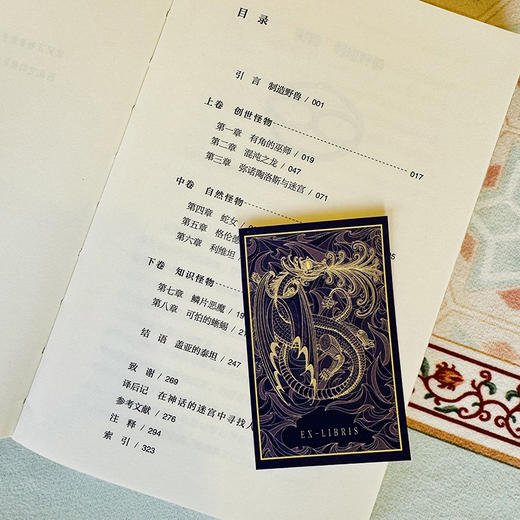 目 录
引 言 制造野兽 / 001
上卷 创世怪物 017
第一章 有角的巫师 / 019
第二章 混沌之龙 / 047
第三章 弥诺陶洛斯与迷宫 / 071
中卷 自然怪物
第四章 蛇女 /
第五章 格伦德
第六章 利维坦
下卷 知识怪物
第七章 鳞片恶魔 / 19
第八章 可怕的蜥蜴 /
结 语 盖亚的泰坦 / 247
致 谢 / 269
译后记 在神话的迷宫中寻找人
参考文献 / 276
注 释 / 294
索 引 / 323
EX-LIBRIS